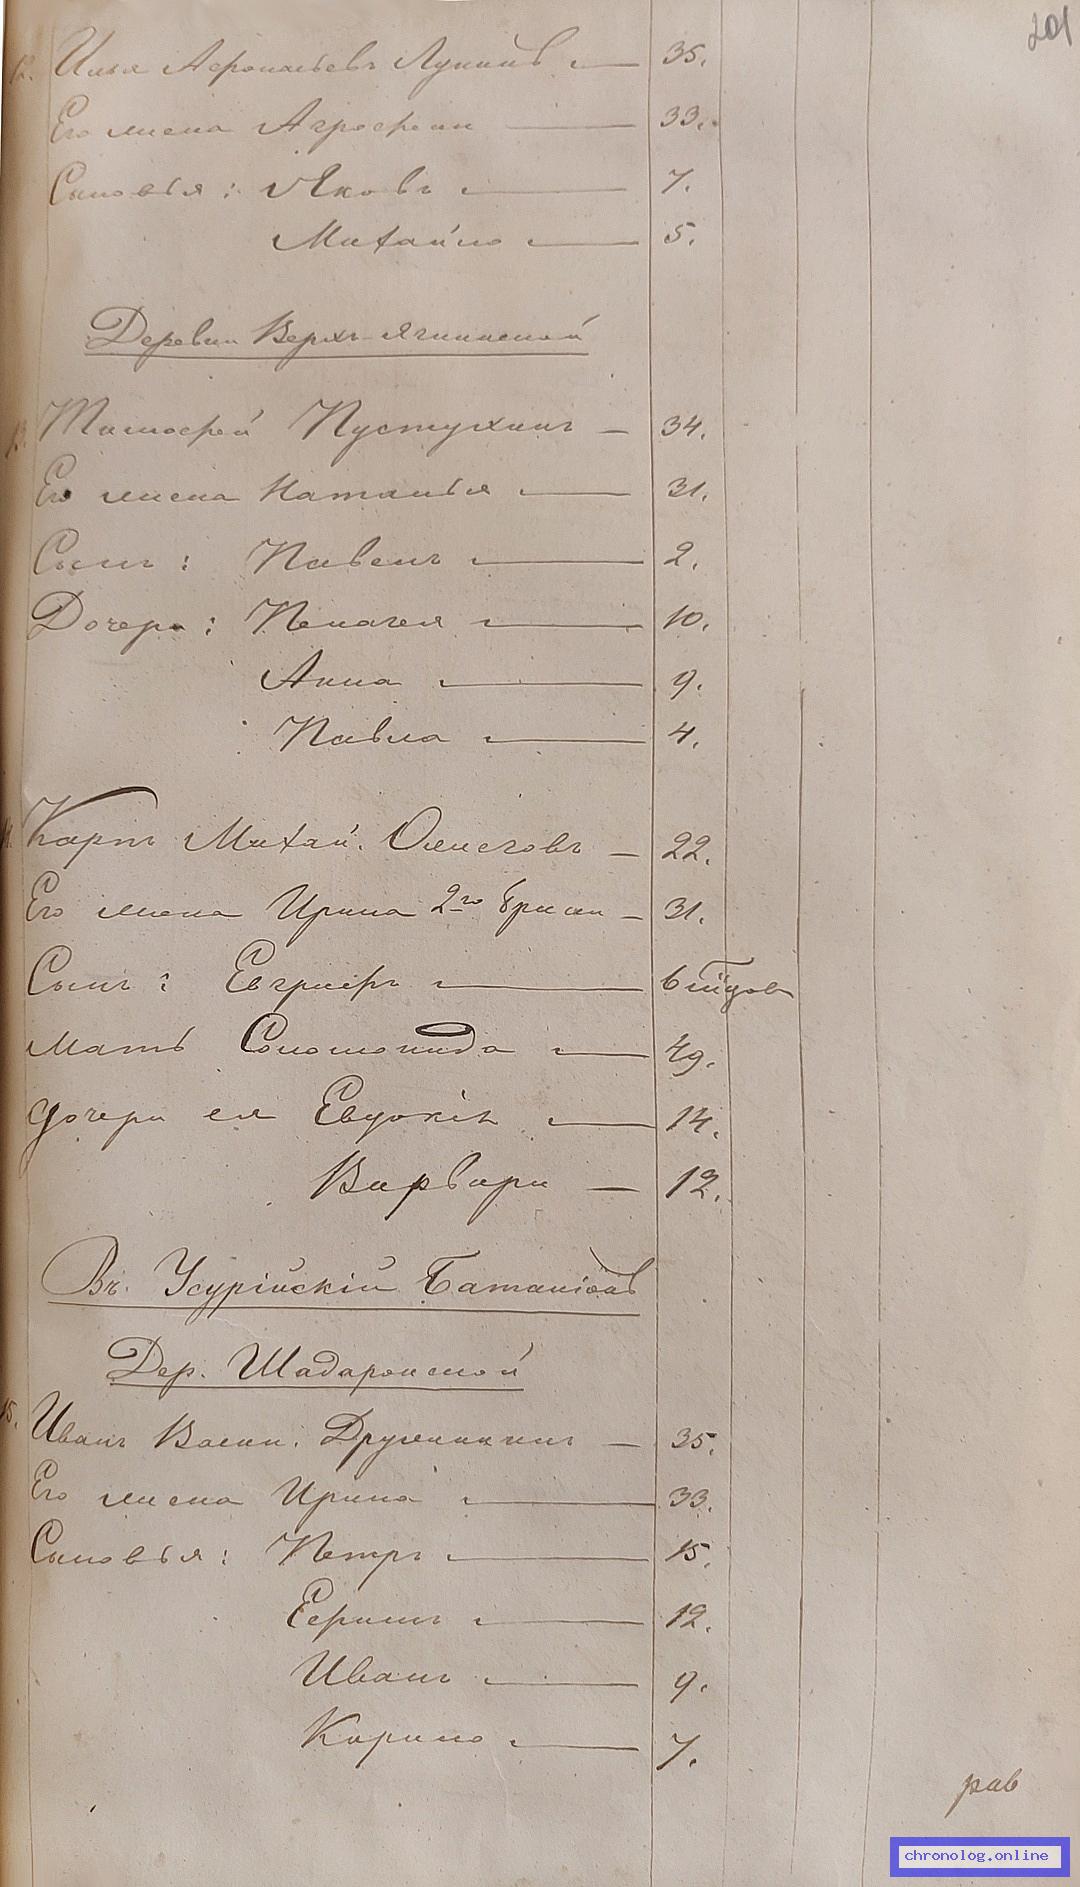 201
12. Илья Афонасьевъ Лунинъ — 35.
Его жена Агрофена — 33.
Сыновья: Яковъ — 7.
Михайло — 5.
Деревни Верхъ-
Тимофей Пустухинъ — 34.
Его жена Наталья — 31.
Сынъ: Павелъ — 2.
Дочери: Пелагея — 10.
Анна — 9.
Павла — 4.
Карпъ Михай. Ожеговъ — 22.
Его жена Ирина 2го брака — 31.
Сынъ: Евграфъ — 6
Мать Соломонида — 49.
дочери ея Евдокія — 14.
Варвара — 12.
Въ Усурійскій Баталіонъ
Дер. Шадаронской
15. Иванъ Васил. Дружининъ — 35.
Его жена Ирина — 33.
Сыновья: Петръ — 15.
Ефимъ — 12.
Иванъ — 9.
Карпъ — 7.
chronolog.online